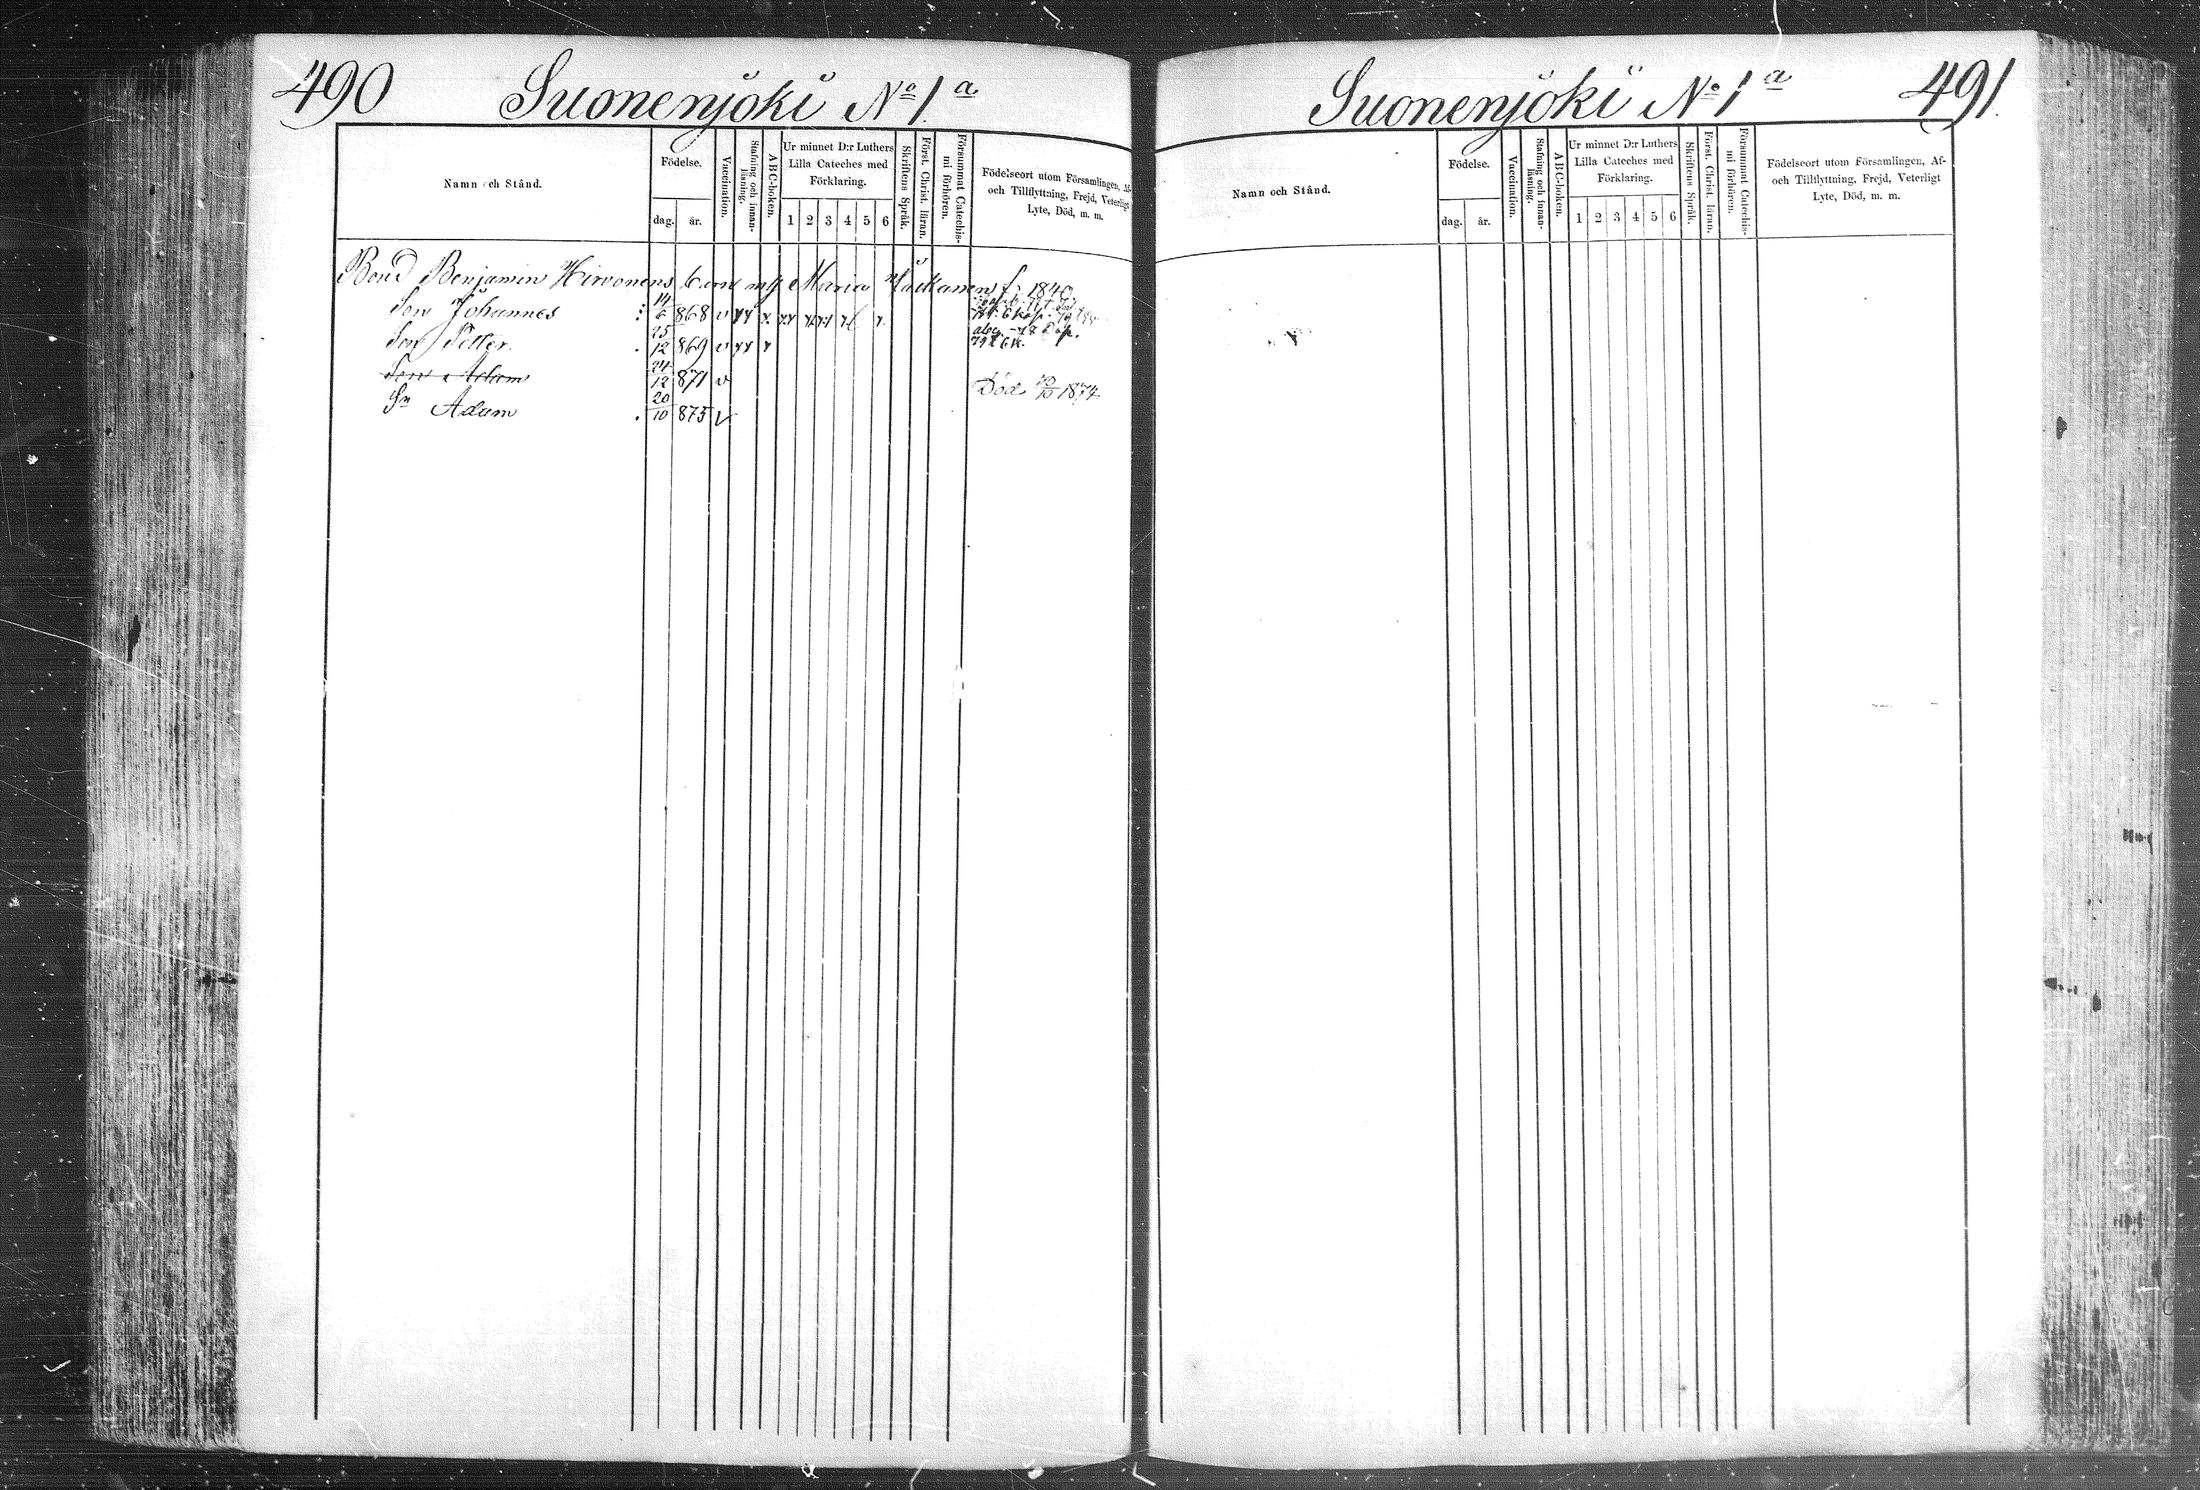 490 Suonenjoki No 1.a
Namn och Stånd.
Födelse.
dag. år.
Vaccination.
Stafning och innan-
läsning.
ABC-boken.
Ur minnet D:r Luthers
Lilla Cateches med
Förklaring.
1 2 3 4 5 6
Skriftens Språk.
Först. Christ. läran.
Försummat Catechis-
mi förhören.
Födelseort utom Församlingen, Af-
och Tillflyttning, Frejd, Veterligt
Lyte, Död, m. m.
Bond Benjamin Hirvonens barn m. Maria f. 1840
Son Johannes 14/6 868 v
Son Petter. 25/12 869 v
Son Adam 24/12 871 v Död 1874
Sn Adam 20/10 875 v
Suonenjoki No 1a 491.
Namn och Stånd.
Födelse.
dag. år.
Vaccination.
Stafning och innan-
läsning.
ABC-boken.
Ur minnet D:r Luthers
Lilla Cateches med
Förklaring.
1 2 3 4 5 6
Skriftens Språk.
Först. Christ. läran.
Försummat Catechis-
mi förhören.
Födelseort utom Församlingen, Af-
och Tillflyttning, Frejd, Veterligt
Lyte, Död, m. m.